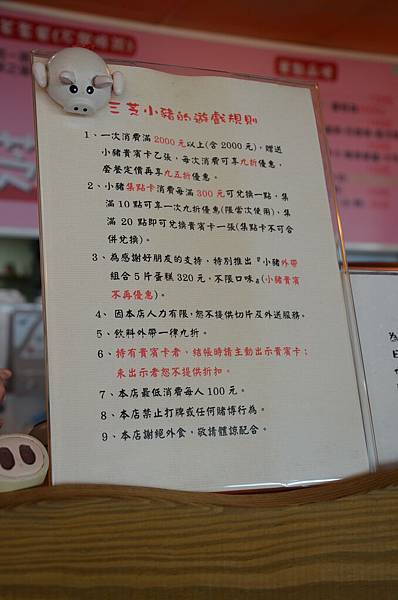 三芝小豬的遊戲規則
1、一次消費滿 2000 元以上(含 2000 元)，贈送
小豬貴賓卡乙張，每次消費可享九折優惠，
套餐定價再享九五折優惠。
2、小豬集點卡消費每滿 300 元可兌換一點，集
滿 10 點可享一次九折優惠(限當次使用)，集
滿 20 點即可兌換貴賓卡一張(集點卡不可合
併兌換)。
3、為感謝好朋友的支持，特別推出『小豬外帶
組合 5 片蛋糕 320 元，不限口味』(小豬貴賓
不再優惠)。
4、因本店人力有限，恕不提供切片及外送服務。
5、飲料外帶一律九折。
6、持有貴賓卡者，結帳時請主動出示貴賓卡；
未出示者恕不提供折扣。
7、本店最低消費每人 100 元。
8、本店禁止打牌或任何賭博行為。
9、本店謝絕外食，敬請體諒配合。
為